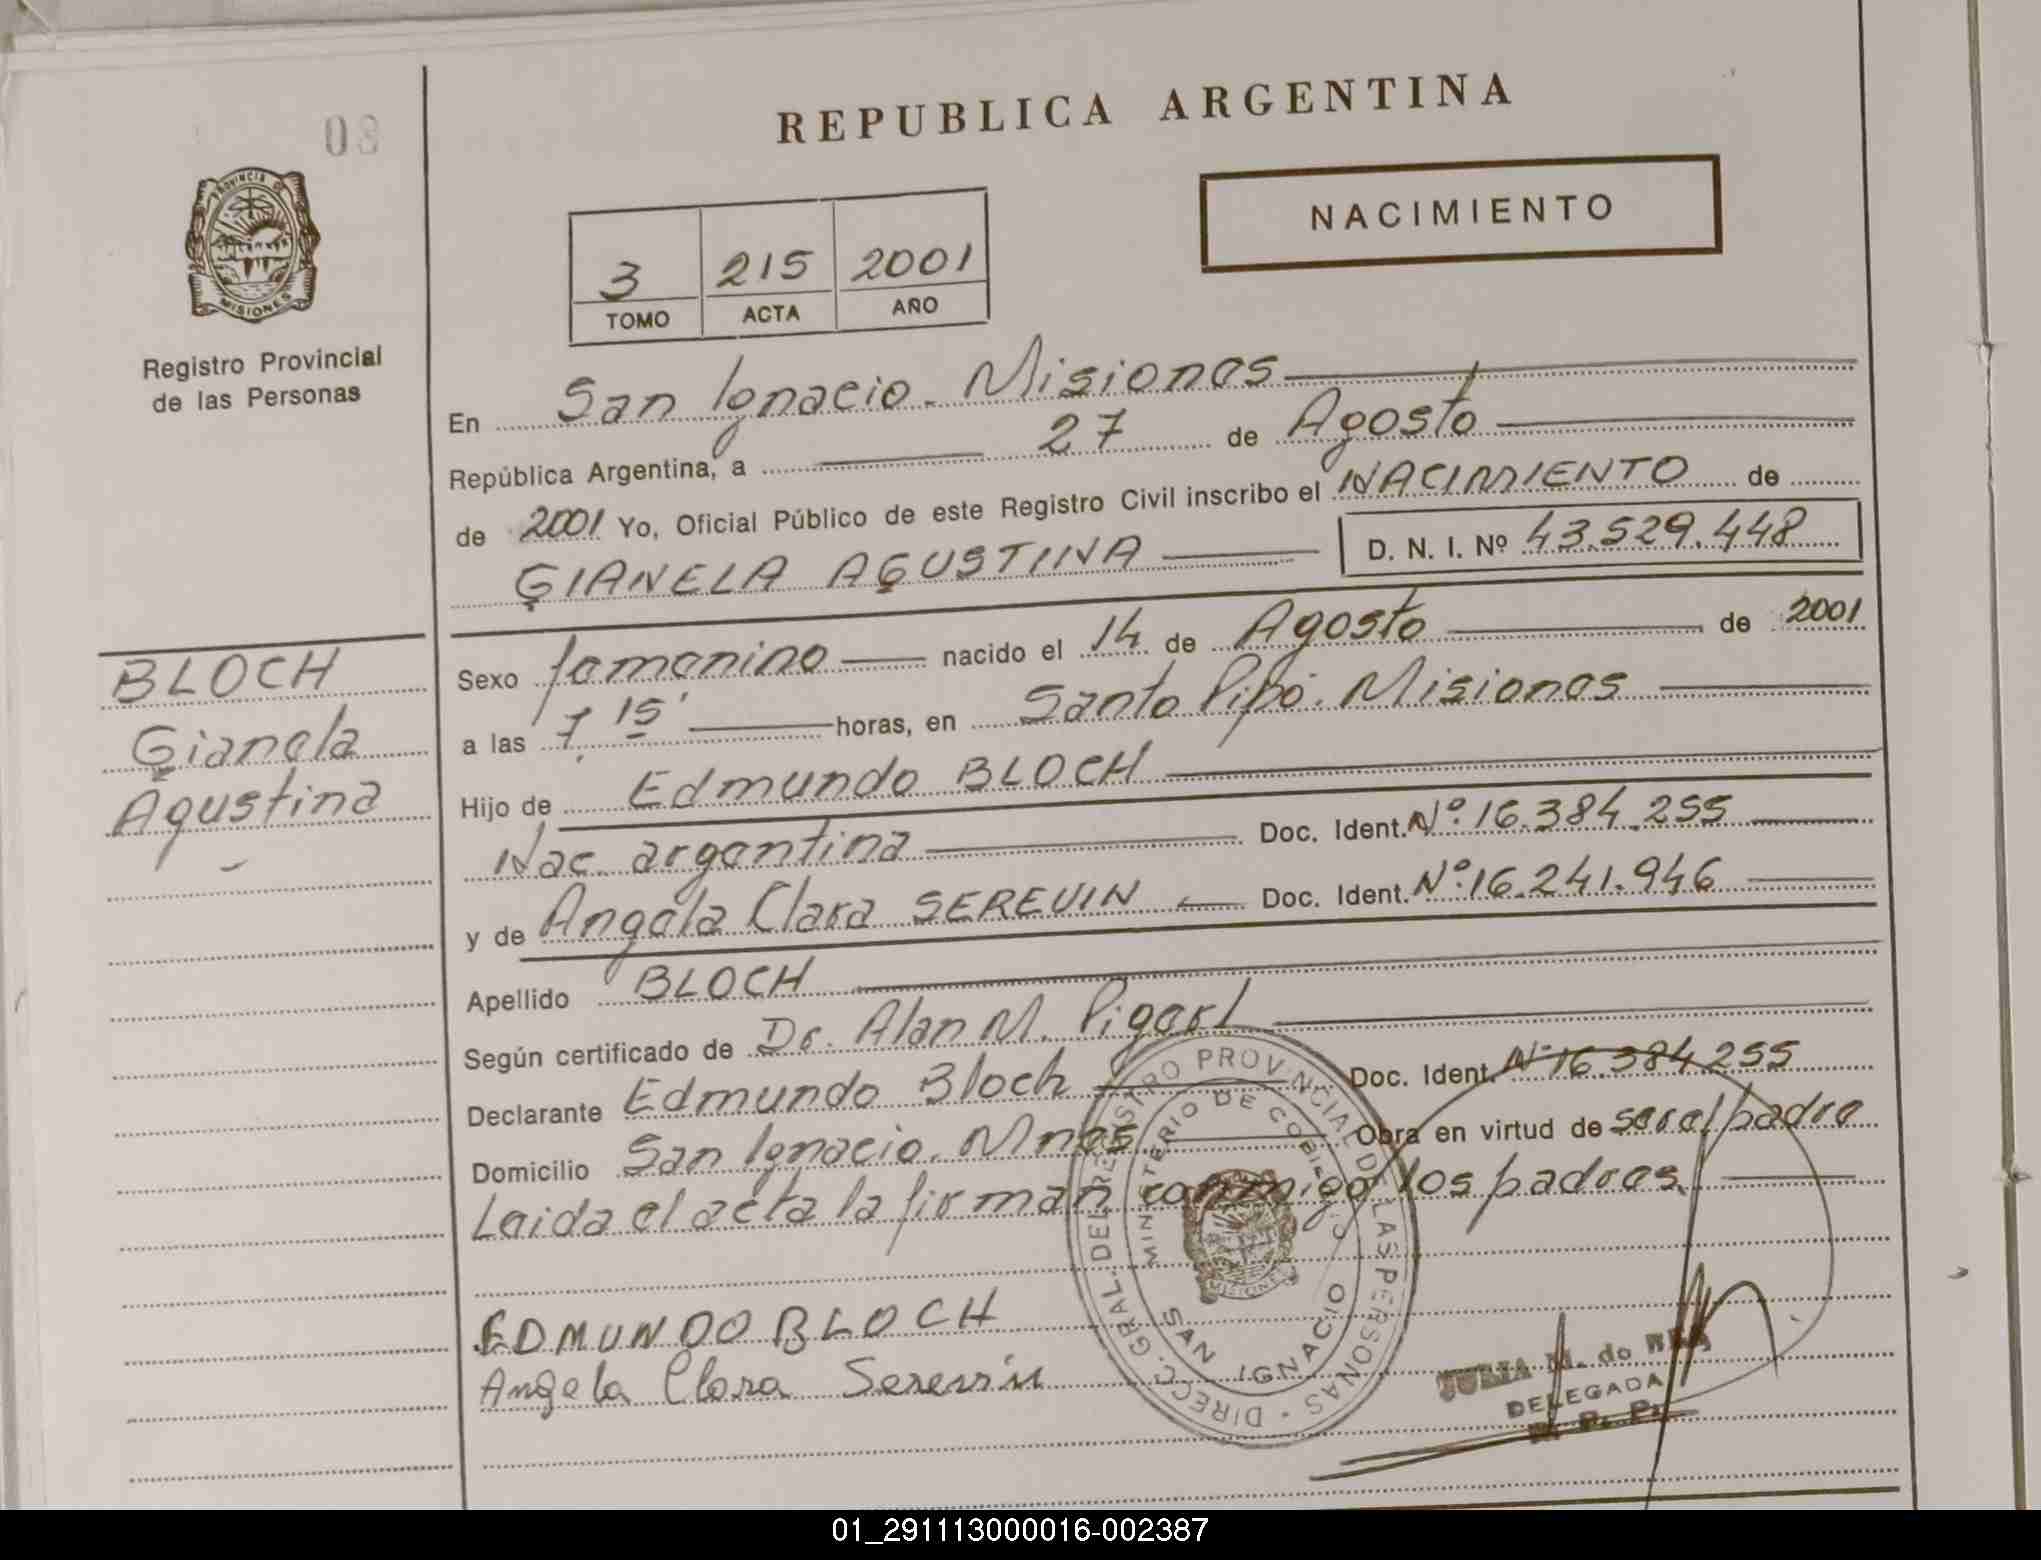 REPUBLICA ARGENTINA
08
PROVINCIA DE
MISIONES
NACIMIENTO
3 215 2001
TOMO ACTA AÑO
Registro Provincial
de las Personas
En San Ignacio. Misiones
República Argentina, a 27 de Agosto
de 2001 Yo, Oficial Público de este Registro Civil inscribo el NACIMIENTO de
GIANELA AGUSTINA D. N. I. Nº 43.529.448
BLOCH
Gianela
Agustina
Sexo femenino nacido el 14 de Agosto de 2001
a las 7,15' horas, en Santo Pipó. Misiones
Hijo de Edmundo BLOCH
Nac. argentina Doc. Ident. Nº: 16.384.255
y de Angela Clara SEREVIN Doc. Ident. Nº: 16.241.946
Apellido BLOCH
Según certificado de Dr. Alan M.
Declarante Edmundo Bloch Doc. Ident. Nº 16.384.255
Domicilio San Ignacio. Mnes Obra en virtud de ser el padre
Leida el acta la firman conmigo los padres.
EDMUNDO BLOCH
Angela Clara Serevin
DIRECC. GRAL. DEL REGISTRO PROVINCIAL DE LAS PERSONAS
MINISTERIO DE GOBIERNO
MISIONES
SAN IGNACIO
JULIA M. do
DELEGADA
R. P. P.
01_291113000016-002387